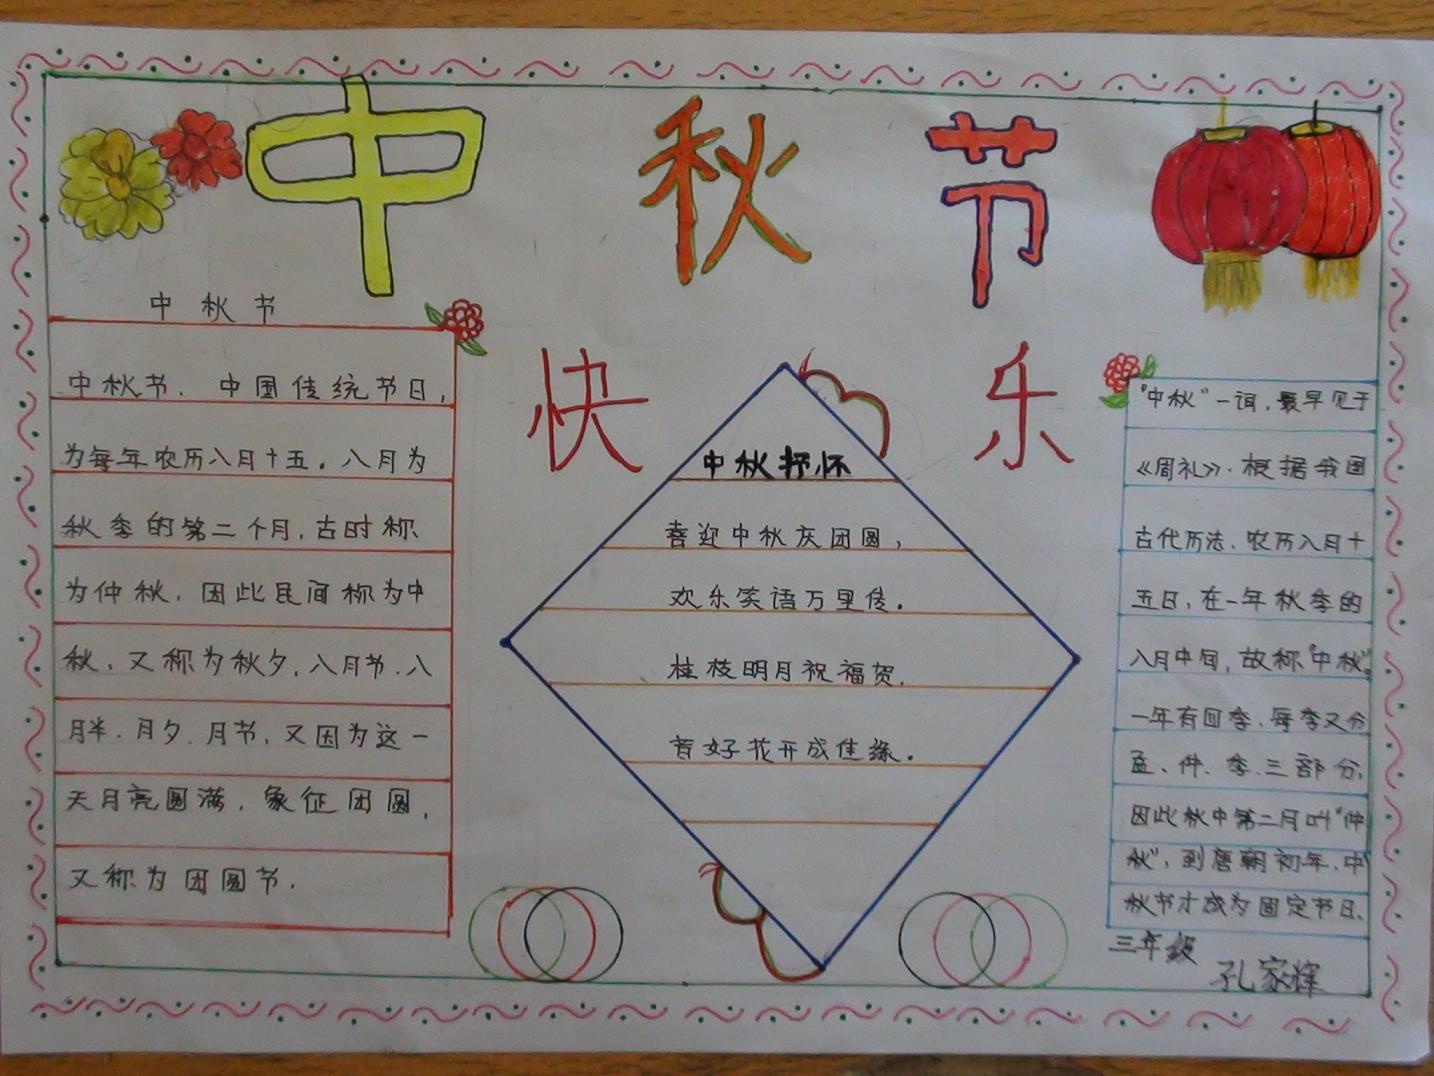 中秋节
快乐
中秋节
中秋节、中国传统节日,
为每年农历八月十五。八月为
秋季的第二个月,古时称
为仲秋,因此民间称为中
秋,又称为秋夕,八月节.八
月半.月夕.月节,又因为这一
天月亮圆满,象征团圆,
又称为团圆节.
中秋抒怀
喜迎中秋庆团圆,
欢乐笑语万里传.
桂枝明月祝福贺.
育好花开成佳缘.
"中秋"一词,最早见于
《周礼》.根据我国
古代历法,农历八月十
五日,在一年秋季的
八月中旬,故称"中秋"。
一年有四季,每季又分
孟、仲、季、三部分,
因此秋中第二月叫"仲
秋",到唐朝初年,中
秋节才成为固定节日.
三年级
孔家辉